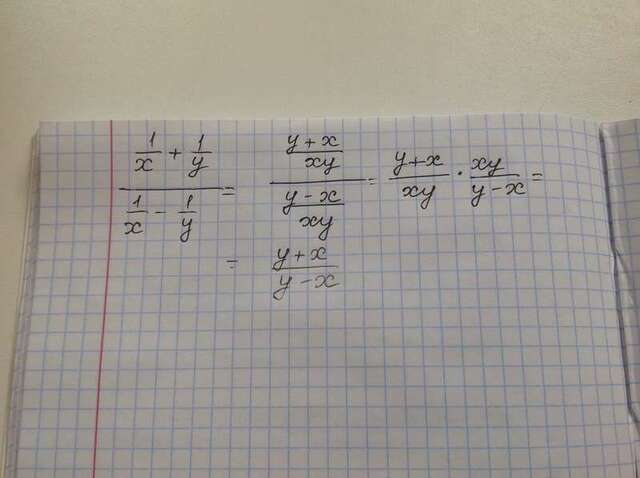 (1/x + 1/y)/(1/x - 1/y) = ((y + x)/xy)/((y - x)/xy) = (y + x)/xy · xy/(y - x) =
= (y + x)/(y - x)